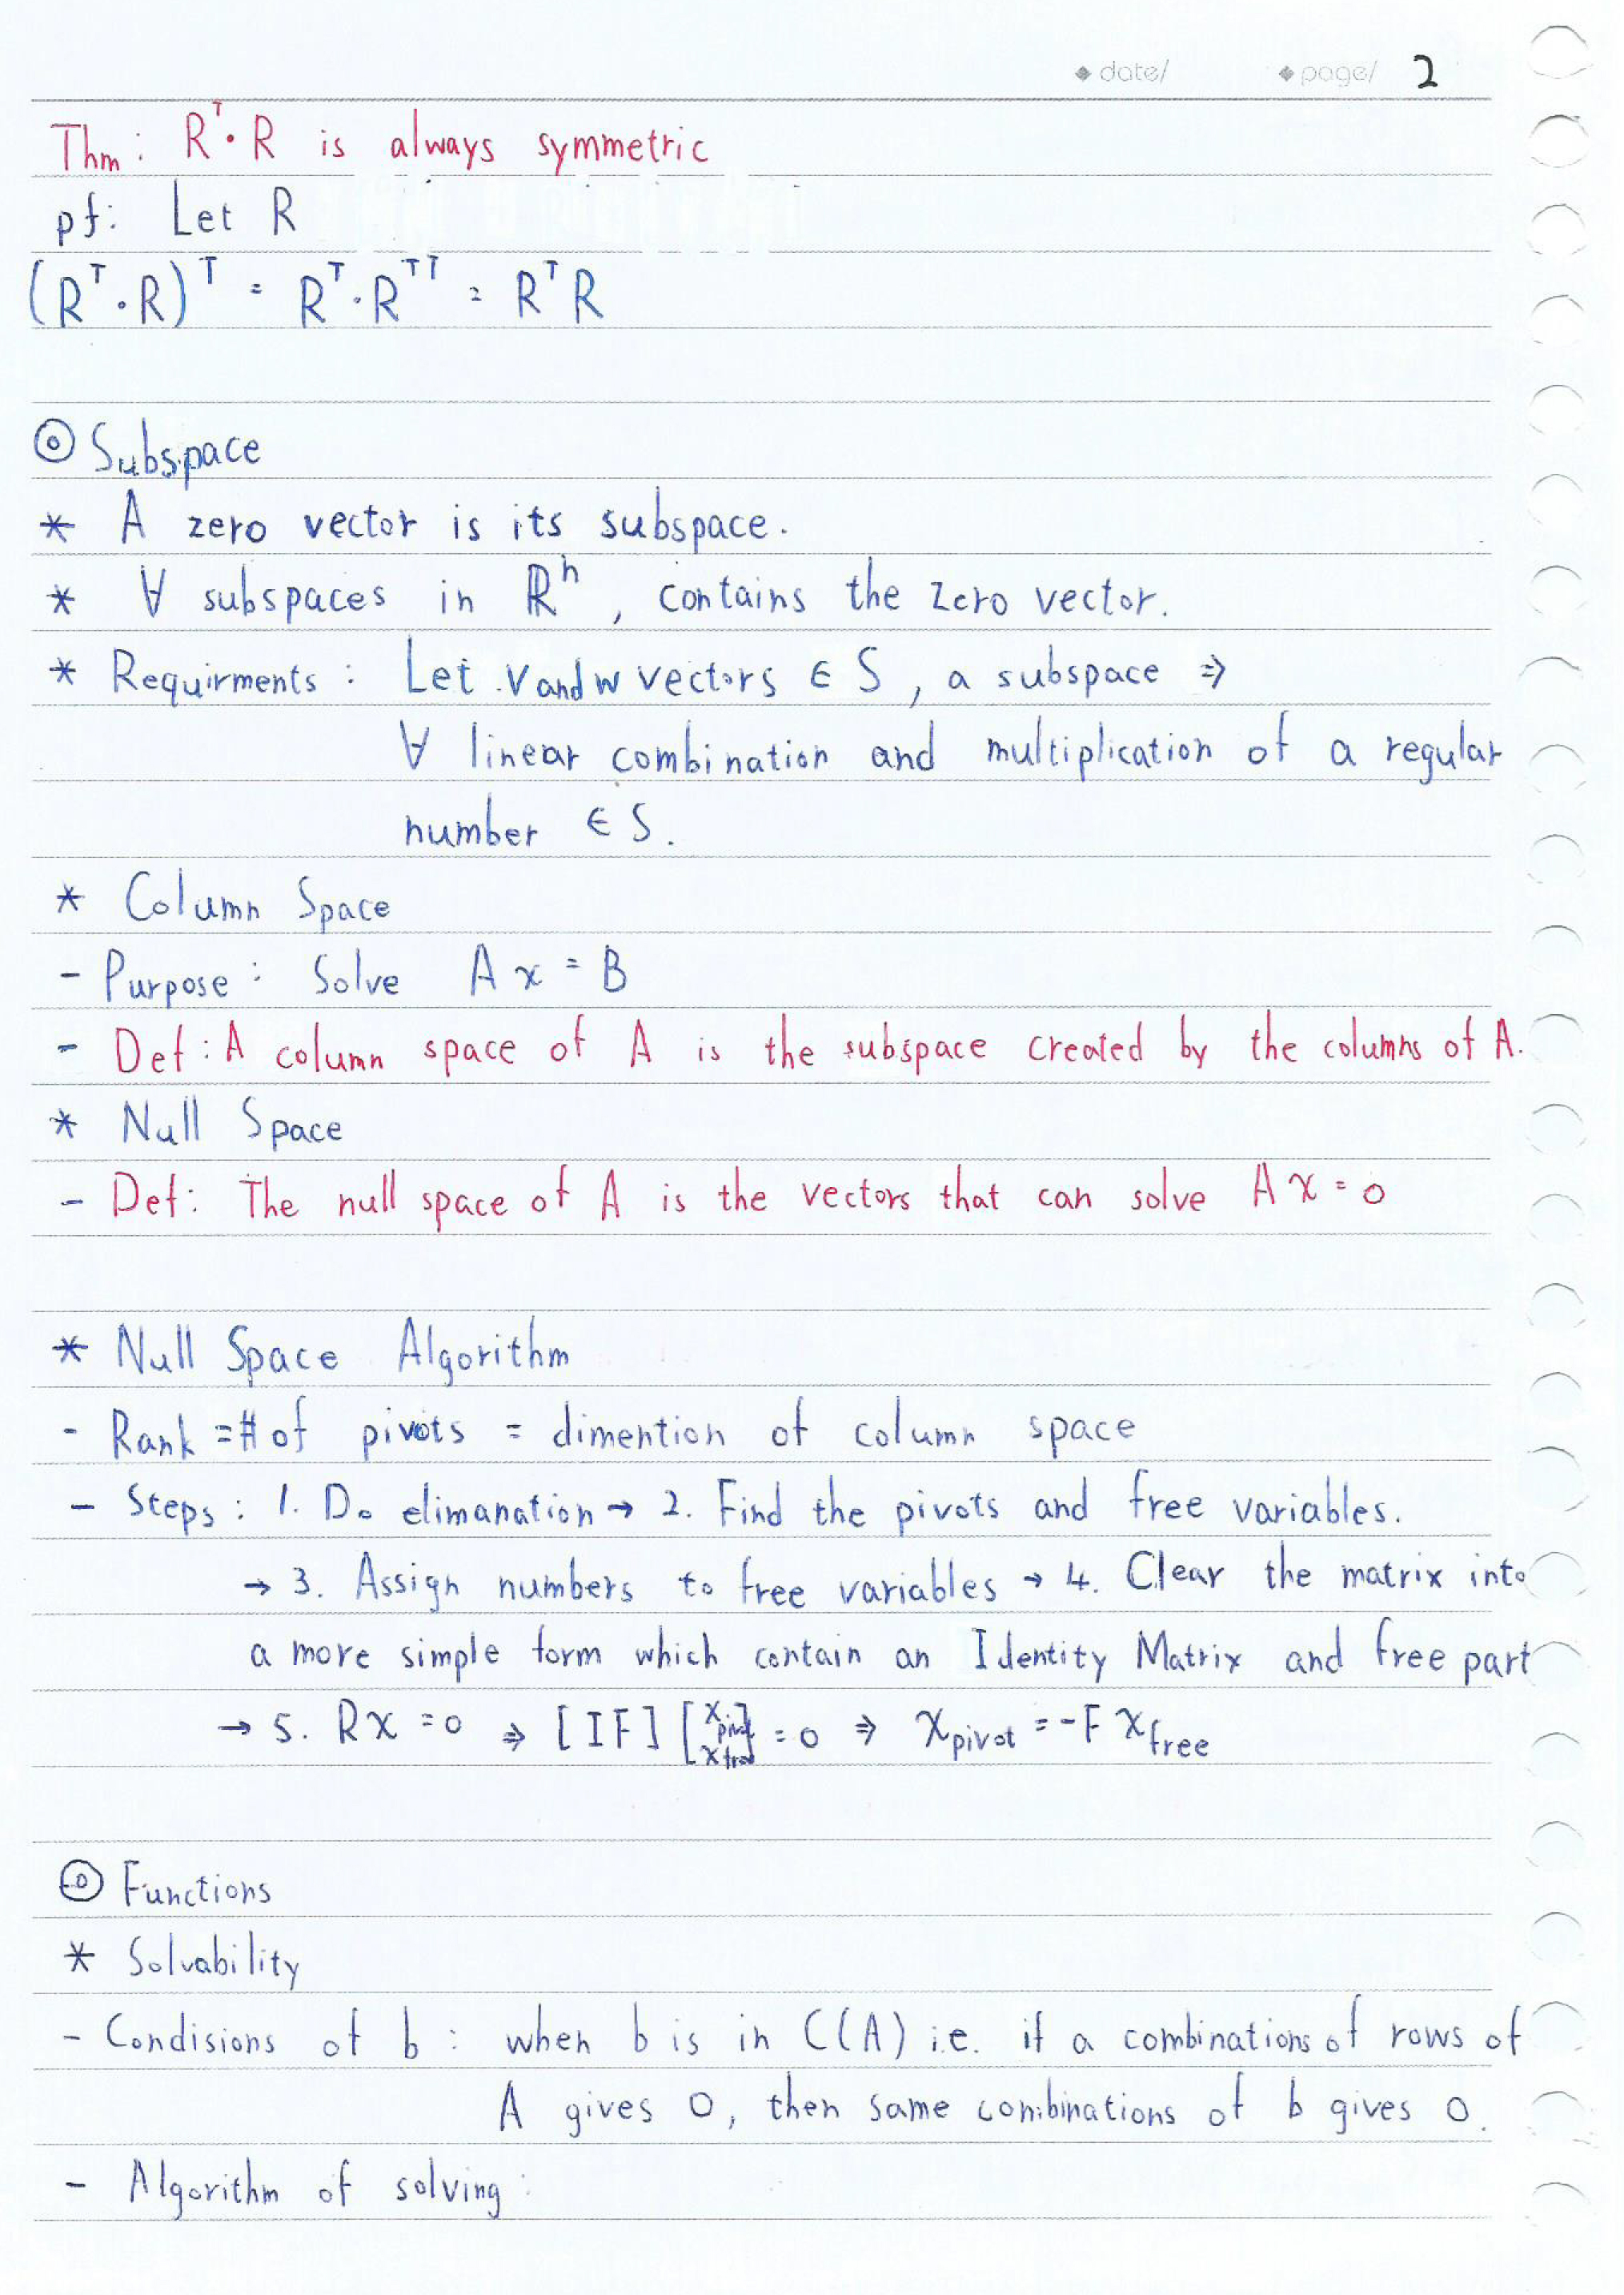 ◆ date/ ◆ page/ 2
Thm: Rᵀ·R is always symmetric
pf: Let R
(Rᵀ·R)ᵀ = Rᵀ·Rᵀᵀ = RᵀR
◎ Subspace
* A zero vector is its subspace.
* ∀ subspaces in ℝⁿ, contains the zero vector.
* Requirments : Let v and w vectors ∈ S, a subspace ⇒
∀ linear combination and multiplication of a regular
number ∈ S.
* Column Space
- Purpose : Solve Ax = B
- Def: A column space of A is the subspace created by the columns of A.
* Null Space
- Def: The null space of A is the vectors that can solve Ax = 0
* Null Space Algorithm
- Rank = # of pivots = dimention of column space
- Steps : 1. Do elimanation → 2. Find the pivots and free variables.
→ 3. Assign numbers to free variables → 4. Clear the matrix into
a more simple form which contain an Identity Matrix and free part
→ 5. Rx = 0 ⇒ [IF] [x pivot x free] = 0 ⇒ x pivot = -F x free
◎ Functions
* Solvability
- Condisions of b : when b is in C(A) i.e. if a combinations of rows of
A gives 0, then same combinations of b gives 0.
- Algorithm of solving :